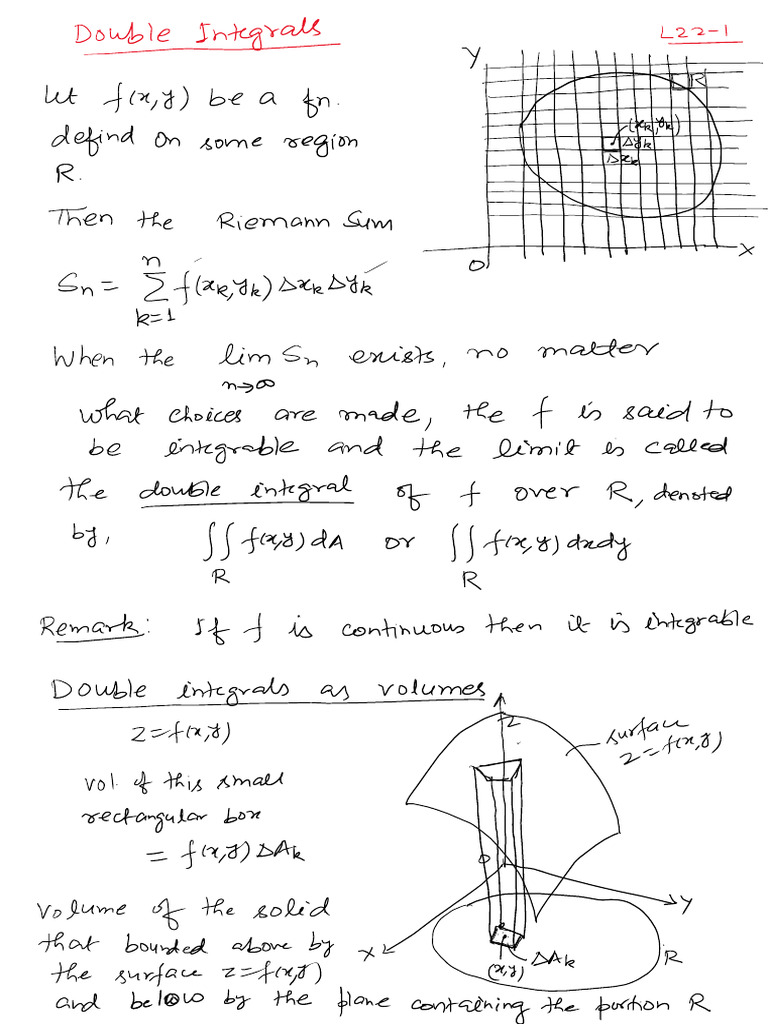 Double Integrals
L22-1
Let f(x,y) be a fn.
defind on some region
R.
Y
R
(xk,yk)
Δyk
Δxk
X
O
Then the Riemann Sum
Sn = n∑k=1 f(xk,yk) Δxk Δyk
When the lim n→∞ Sn exists, no matter
what choices are made, the f is said to
be integrable and the limit is called
the double integral of f over R, denoted
by, ∬R f(x,y) dA or ∬R f(x,y) dxdy
Remark: If f is continuous then it is integrable
Double integrals as volumes
z=f(x,y)
vol. of this small
rectangular box
= f(x,y) ΔAk
Z
surface
z=f(x,y)
O
Y
X
ΔAk
(x,y)
R
volume of the solid
that bounded above by
the surface z=f(x,y)
and below by the plane containing the portion R